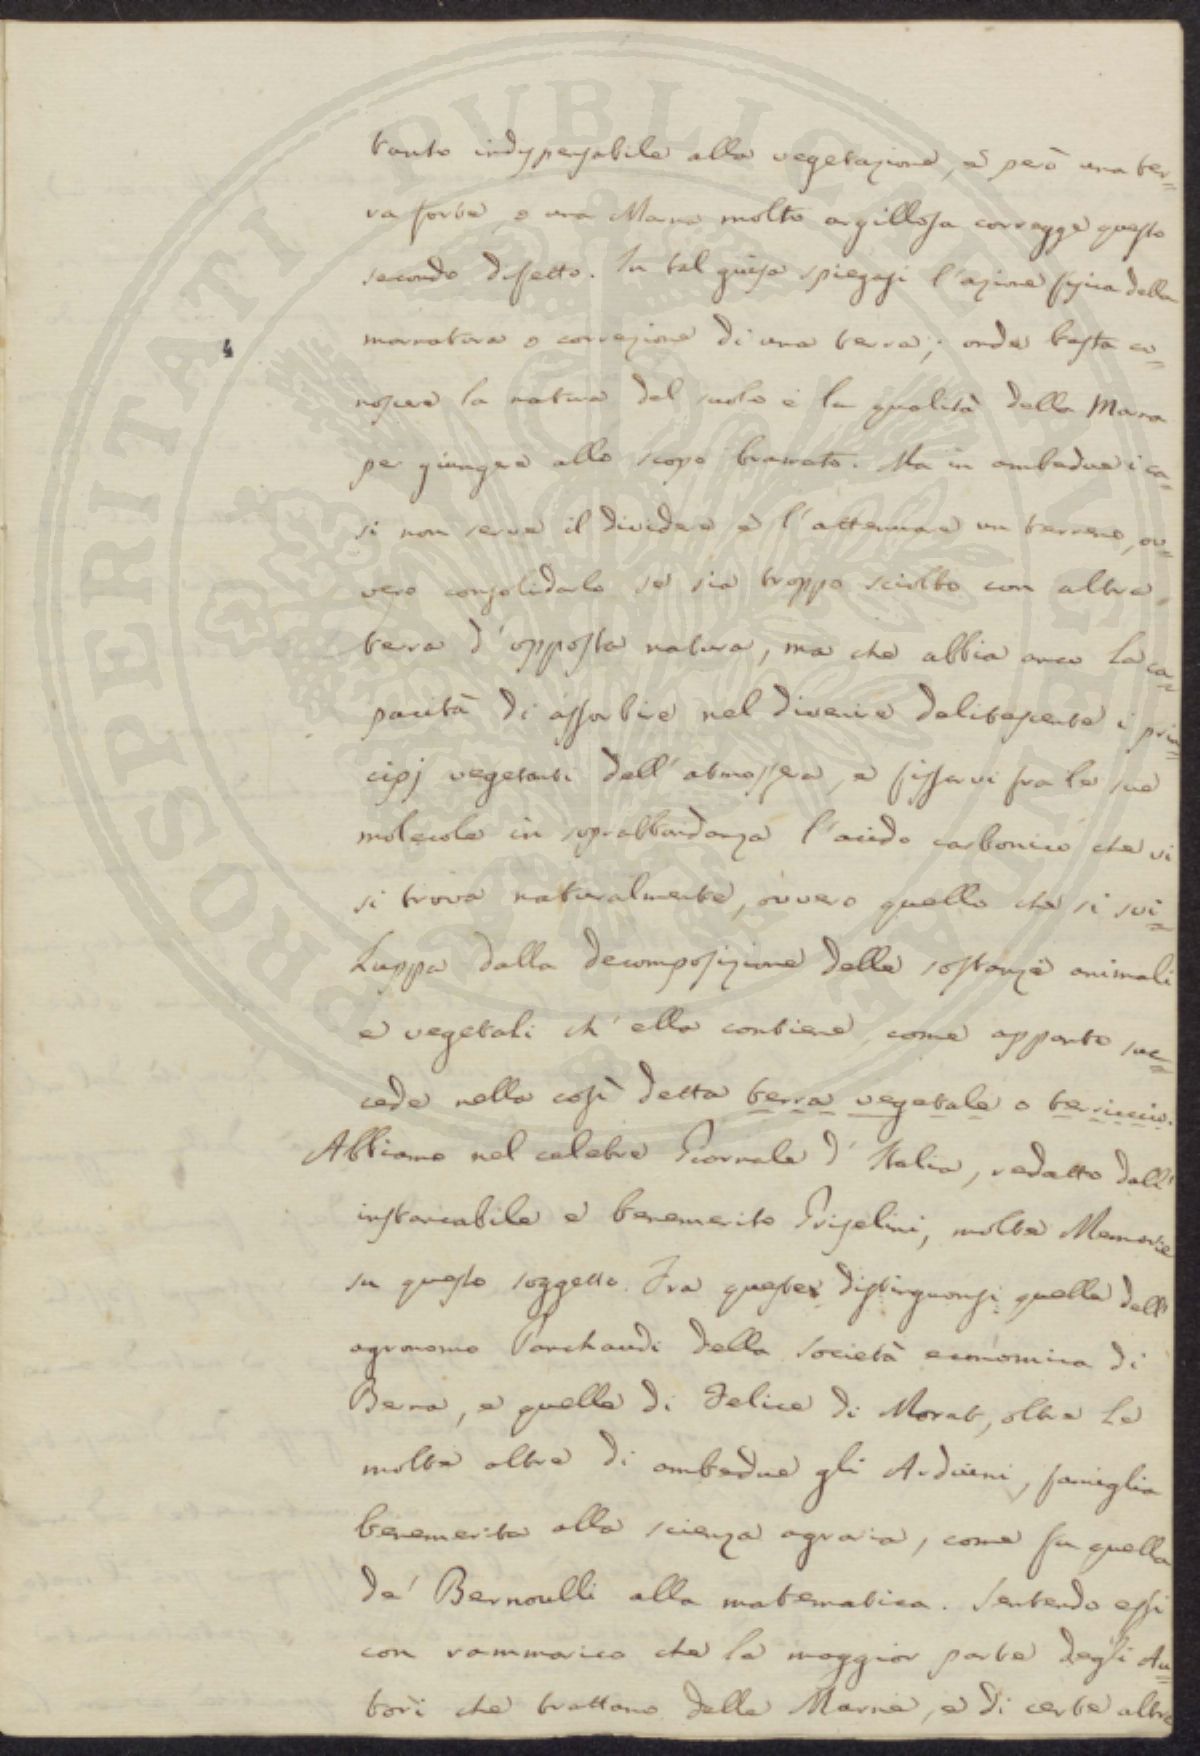 tanto indispensabile alla vegetazione, e però una ter=
ra forte, o una Marna molto argillosa corregge questo
secondo difetto. In tal guisa spiegasi l'azione fisica della
marnatura o correzione di una terra; onde basta co=
noscere la natura del suolo e la qualità della Marna
per giungere allo scopo bramato. Ma in ambedue i ca=
si non serve il dividere e l'attenuare un terreno, ov=
vero consolidarlo se sia troppo sciolto con altra
terra d'opposta natura, ma che abbia anco la ca=
pacità di assorbire nel divenire delitescente i prin=
cipj vegetanti dell'atmosfera, e fissarvi fra le sue
molecole in soprabbondanza l'acido carbonico che vi
si trova naturalmente, ovvero quello che si svi=
luppa dalla decomposizione delle sostanze animali
e vegetali ch'ella contiene, come appunto suc=
cede nella così detta terra vegetale o terriccio.
Abbiamo nel celebre Giornale d'Italia, redatto dall'
instancabile e benemerito Griselini, molte Memorie
su questo soggetto. Fra queste distinguonsi quella dell'
agronomo Panchaudi della Società economica di
Berna, e quelle di Felice di Morat, oltre le
molte altre di ambedue gli Arduini, famiglia
benemerita alla scienza agraria, come fu quella
de' Bernoulli alla matematica. Sentendo essi
con rammarico che la maggior parte degli Au=
tori che trattano delle Marne, e di certe altre
PROSPERITATI PVBLICAE AVGENDAE